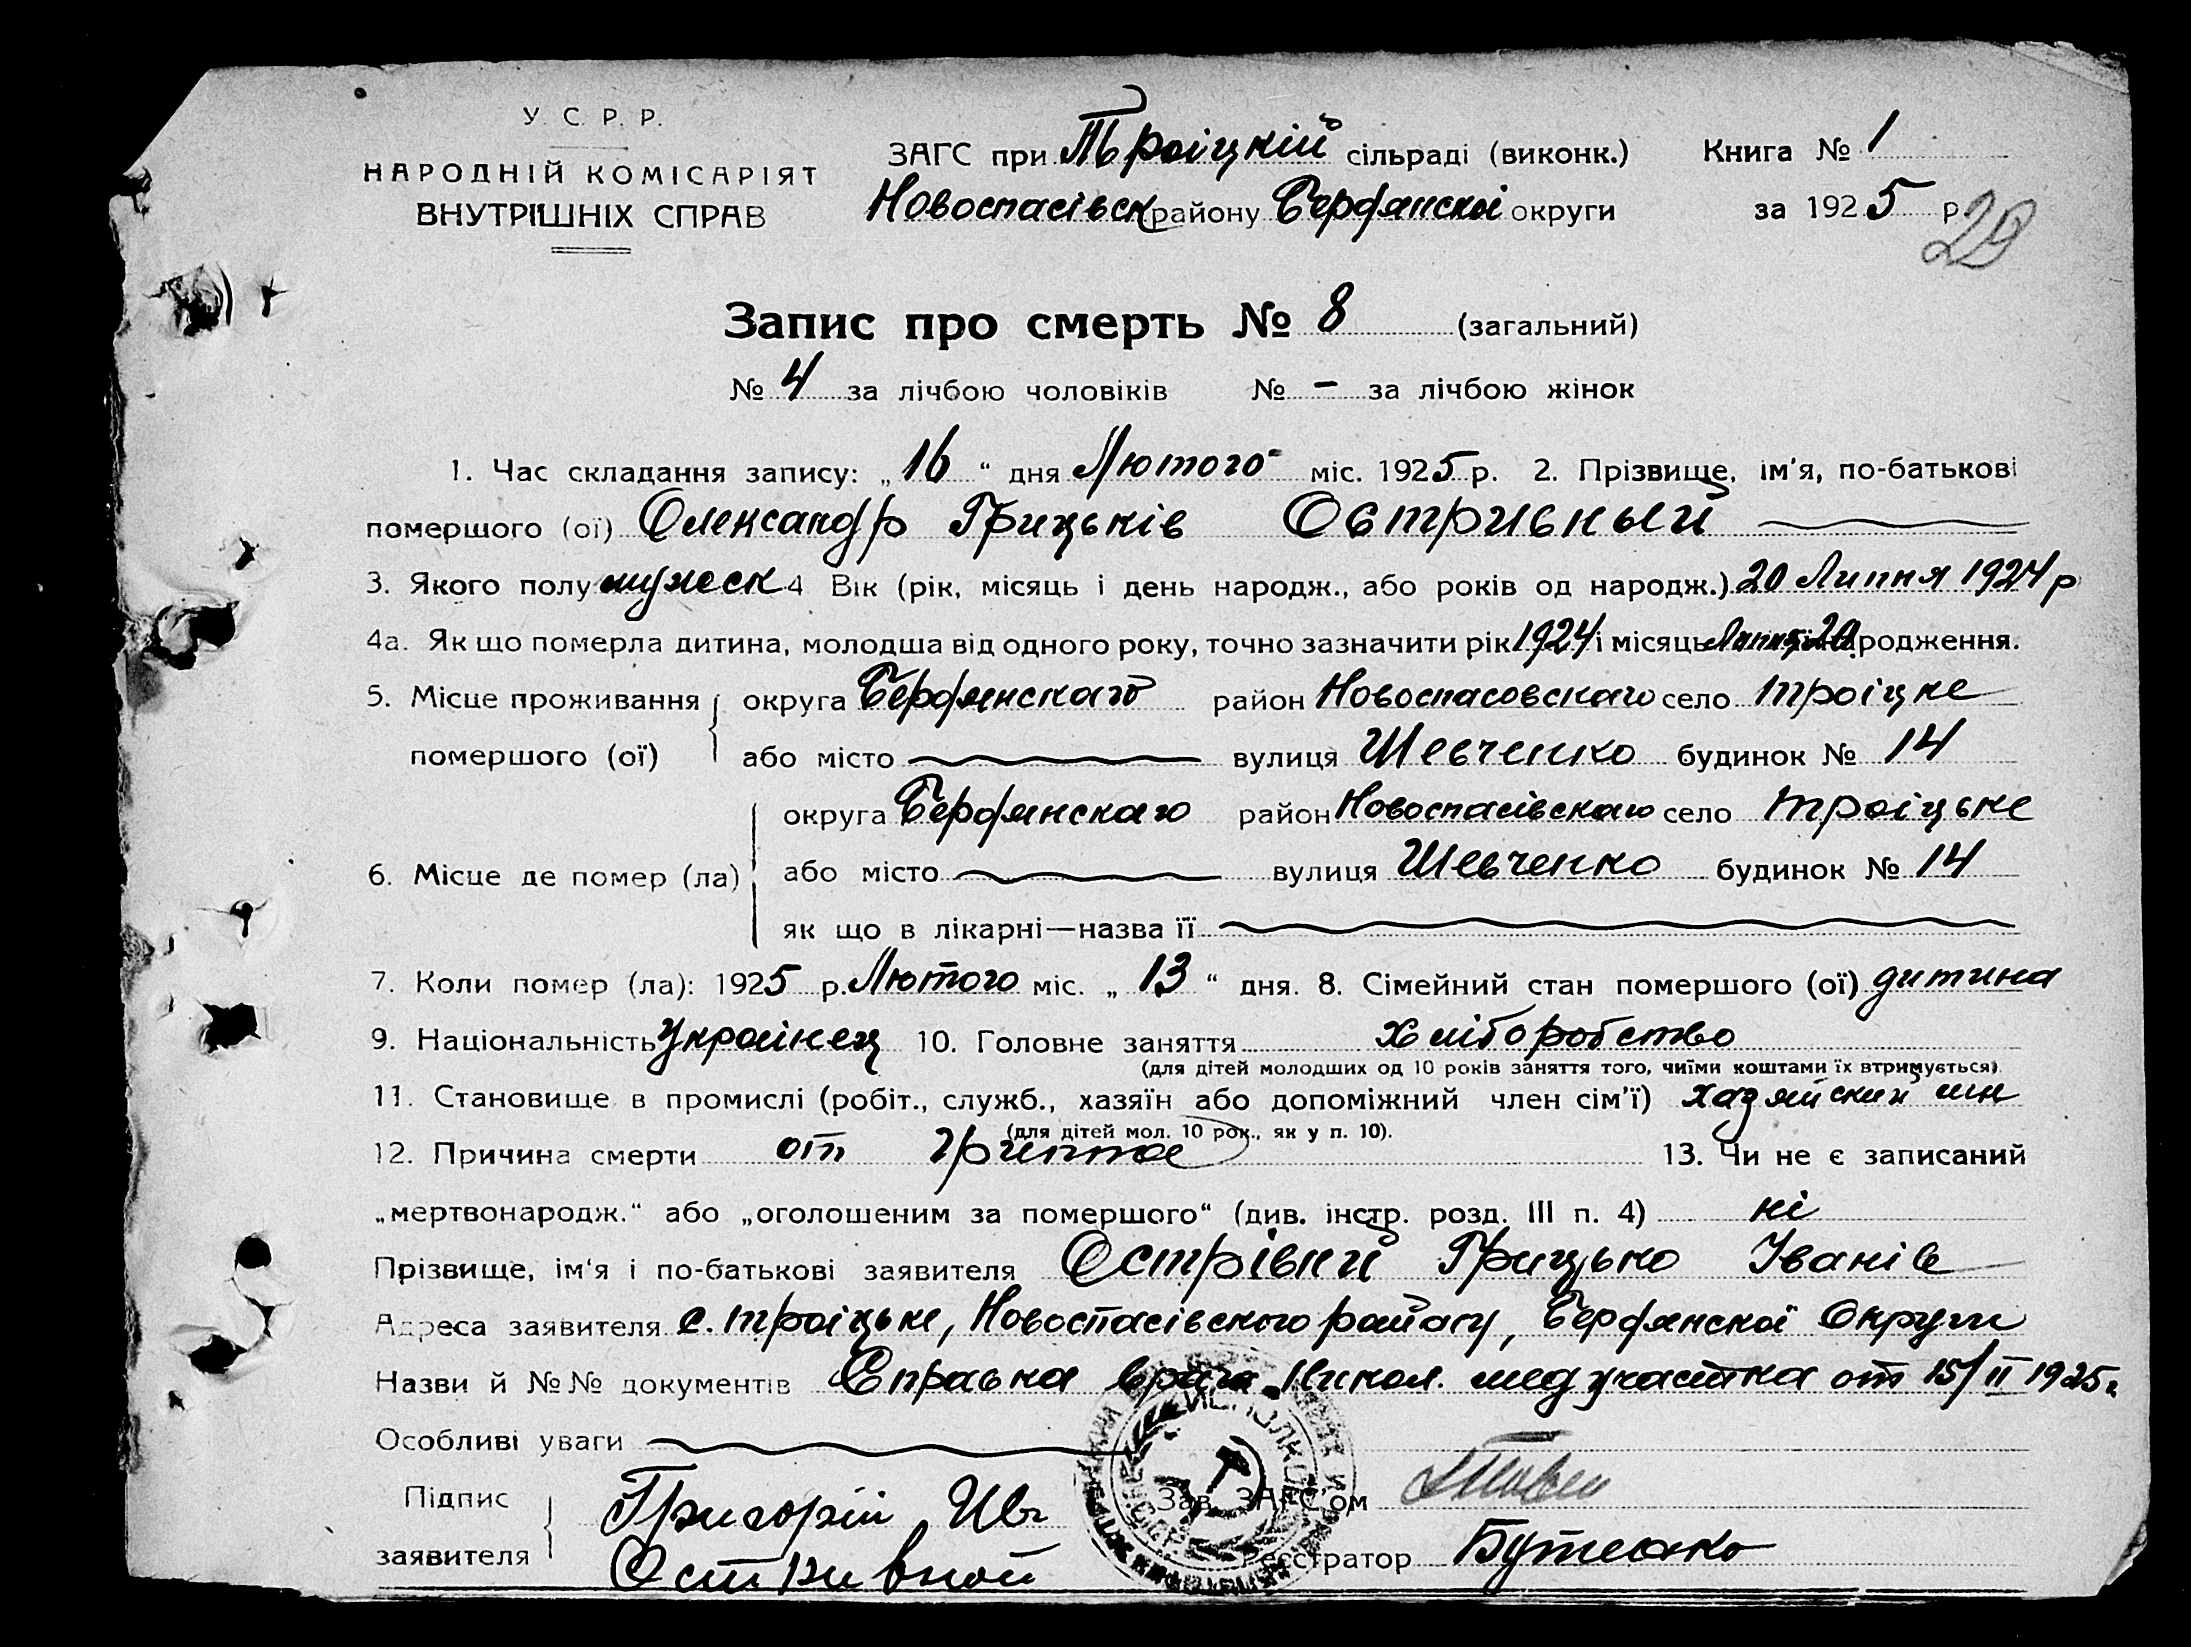 У. С. Р. Р.
НАРОДНІЙ КОМІСАРІЯТ
ВНУТРІШНІХ СПРАВ
ЗАГС при Троіцкій сільраді (виконк.)
Новоспасівск району Бердянскоі округи
Книга № 1
за 1925 р.
29
Запис про смерть № 8 (загальний)
№ 4 за лічбою чоловіків № – за лічбою жінок
1. Час складання запису: „16“ дня Лютого міс. 1925 р. 2. Прізвище, ім'я, по-батькові
помершого (ої) Олександр Грицьків Овтривный
3. Якого полу мужеск 4 Вік (рік, місяць і день народж., або років од народж.) 20 Липня 1924 р
4а. Як що померла дитина, молодша від одного року, точно зазначити рік 1924 і місяць Липня 20 народження.
5. Місце проживання округа Бердянскаго район Новоспасовскаго село Троіцке
помершого (ої) або місто вулиця Шевченко будинок № 14
округа Бердянскаго район Новоспасівскаго село Троіцьке
6. Місце де помер (ла) або місто вулиця Шевченко будинок № 14
як що в лікарні—назва її
7. Коли помер (ла): 1925 р. Лютого міс. „13“ дня. 8. Сімейний стан помершого (ої) дитина
9. Національність Украінец 10. Головне заняття хліборобство
(для дітей молодших од 10 років заняття того, чиїми коштами їх втримується)
11. Становище в промислі (робіт., служб., хазяїн або допоміжний член сім'ї) хазяйский
(для дітей мол. 10 рок., як у п. 10).
12. Причина смерти от гриппа 13. Чи не є записаний
„мертвонародж.“ або „оголошеним за помершого“ (див. інстр. розд. III п. 4) ні
Прізвище, ім'я і по-батькові заявителя Острівний Грицько Іванів
Адреса заявителя с. Троіцьке, Новоспасівского району, Бердянскоі Округи
Назви й №№ документів Справка врача Никол. мед участка от 15/II 1925 г.
Особливі уваги
Підпис Григорій Ив Зав. ЗАГС'ом
заявителя Остривной Реєстратор Бутенко